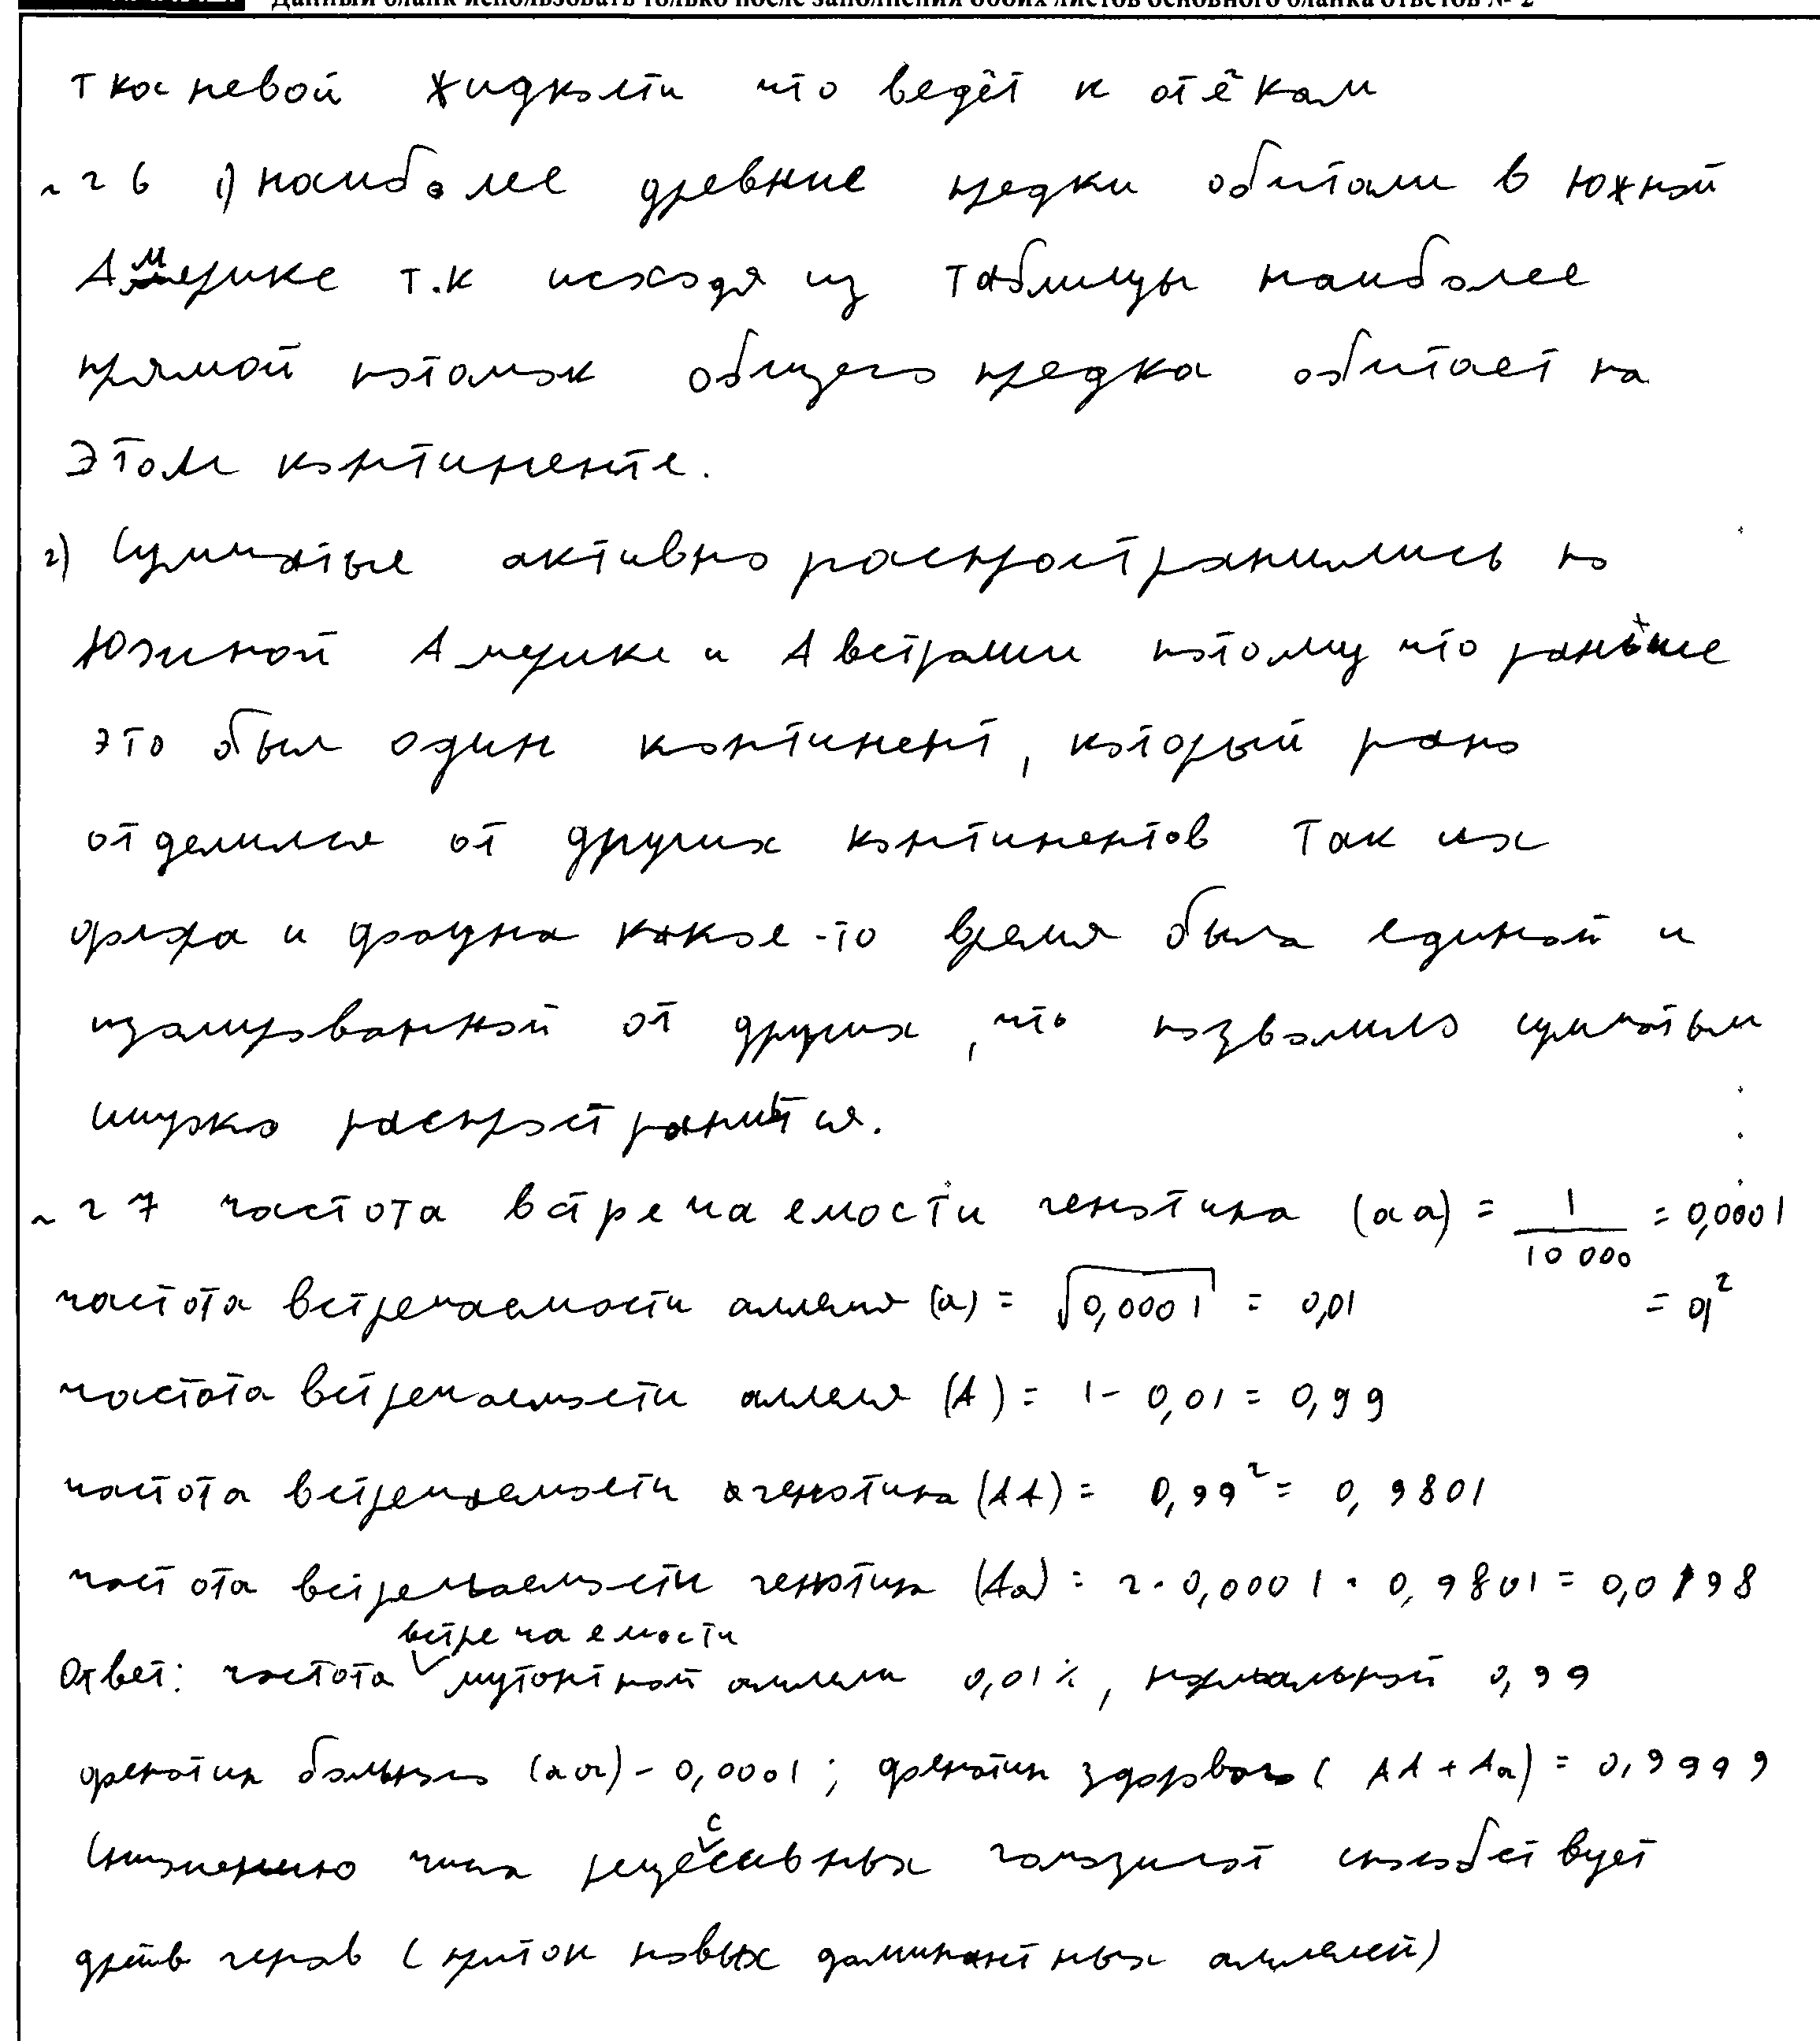 Данный бланк использовать только после заполнения обоих листов основного бланка ответов № 2
тканевой жидкости что ведёт к отёкам
~26 1) наиболее древние предки обитали в южной
Америке т.к исходя из таблицы наиболее
прямой потомок общего предка обитает на
этом континенте.
2) Сумчатые активно распространились по
Южной Америке и Австралии потому что раньше
это был один континент, который рано
отделился от других континентов Так их
флора и фауна какое-то время была единой и
изолированной от других, что позволило сумчатым
широко распространиться.
~27 частота встречаемости генотипа (aa) = 1/10 000 = 0,0001
частота встречаемости аллеля (a) = √0,0001 = 0,01 = q²
частота встречаемости аллеля (A) = 1 - 0,01 = 0,99
частота встречаемости генотипа (AA) = 0,99² = 0,9801
частота встречаемости генотип (Aa) = 2 · 0,0001 · 0,9801 = 0,0198
Ответ: частота встречаемости мутантной аллели 0,01%, нормальной 0,99
фенотип больного (aa) - 0,0001; фенотип здорового (AA + Aa) = 0,9999
Снижению числа рецессивных гомозигот способствует
дрейф генов (приток новых доминантных аллелей)